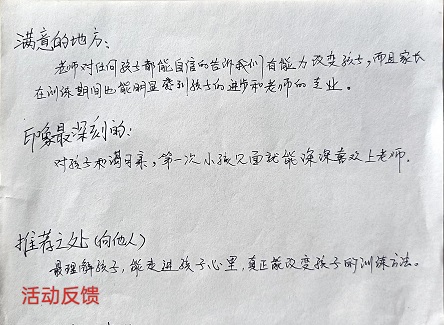 满意的地方:
老师对任何孩子都能自信的告诉我们有能力改变孩子,而且家长
在训练期间也能明显看到孩子的进步和老师的专业。
印象最深刻的:
对孩子和蔼可亲,第一次小孩见面就能深深喜欢上老师.
推荐之处(向他人)
最理解孩子,能走进孩子心里,真正能改变孩子的训练方法。
活动反馈